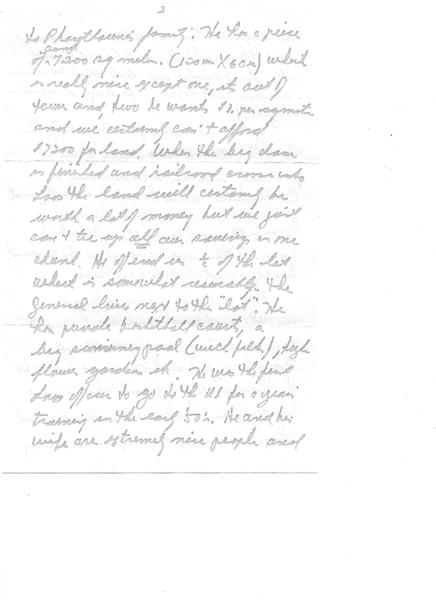 3
to Phaythoune's family. He has a piece
of land 7200 sq meters. (120m X 60m) which
is really nice except one, its out of
town and, two he wants $1. per sq meter
and we certainly can't afford
$7200 for land. When the big dam
is finished and railroad crosses into
Laos the land will certainly be
worth a lot of money but we just
can't tie up all our savings in one
chunk. He offered us ½ of the lot
which is somewhat reasonable. The
general lives next to the "lot". He
has private basketball courts, a
big swimming pool (with fish), high
flower gardens etc. He was the first
Laos officer to go to the US for a years
training in the early '50's. He and his
wife are extremely nice people and